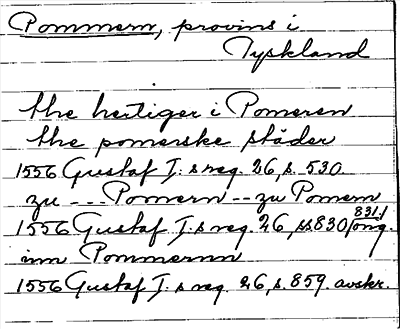 Pommern, provins i
Tyskland
the hertiger i Pomeren
the pomerske städer
1556 Gustaf I. s reg. 26, s. 530.
zu --- Pomern -- zu Pomern
1556 Gustaf I. s reg. 26, ss 830/831/ orig.
inn Pommernn
1556 Gustaf I. s reg. 26, s. 859. avskr.